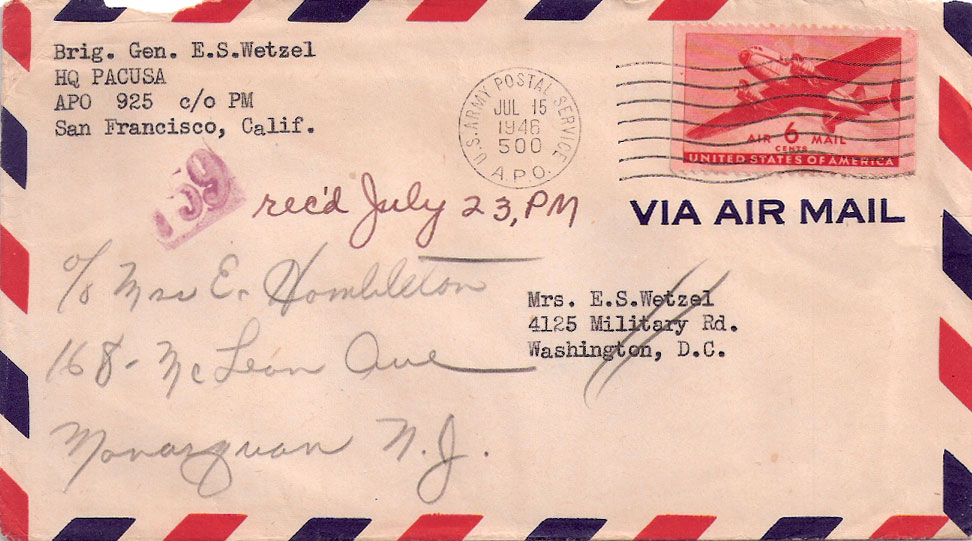 Brig. Gen. E.S.Wetzel
HQ PACUSA
APO 925 c/o PM
San Francisco, Calif.
U.S. ARMY POSTAL SERVICE
JUL 15
1946
500
A.P.O.
AIR 6 MAIL
CENTS
UNITED STATES OF AMERICA
VIA AIR MAIL
59
rec'd July 23, PM
c/o Mrs E. Hombleton
168- McLean Ave
Manasquan N.J.
Mrs. E.S.Wetzel
4125 Military Rd.
Washington, D.C.